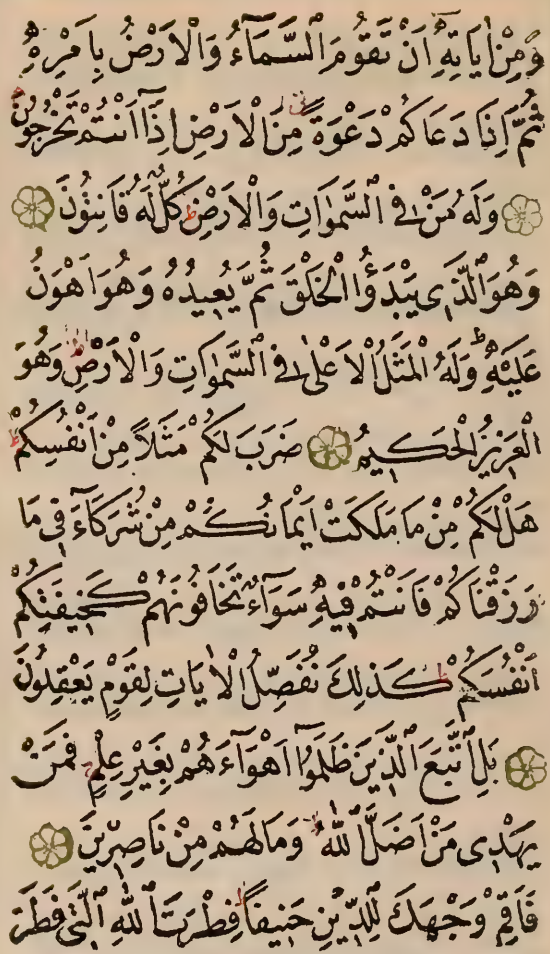 وَمِنْ اٰيَاتِهٖٓ اَنْ تَقُومَ السَّمَآءُ وَالْاَرْضُ بِاَمْرِهٖ
ثُمَّ اِذَا دَعَاكُمْ دَعْوَةً مِنَ الْاَرْضِ اِذَآ اَنْتُمْ تَخْرُجُونَ
وَلَهُ مَنْ فِي السَّمٰوَاتِ وَالْاَرْضِ كُلٌّ لَهُ قَانِتُونَ
وَهُوَ الَّذِى يَبْدَؤُا الْخَلْقَ ثُمَّ يُعِيدُهُ وَهُوَ اَهْوَنُ
عَلَيْهِ وَلَهُ الْمَثَلُ الْاَعْلٰى فِي السَّمٰوَاتِ وَالْاَرْضِ وَهُوَ
الْعَزِيزُ الْحَكِيمُ ضَرَبَ لَكُمْ مَثَلًا مِنْ اَنْفُسِكُمْ
هَلْ لَكُمْ مِنْ مَا مَلَكَتْ اَيْمَانُكُمْ مِنْ شُرَكَآءَ فِي مَا
رَزَقْنَاكُمْ فَاَنْتُمْ فِيهِ سَوَآءٌ تَخَافُونَهُمْ كَخِيفَتِكُمْ
اَنْفُسَكُمْ كَذٰلِكَ نُفَصِّلُ الْاٰيَاتِ لِقَوْمٍ يَعْقِلُونَ
بَلِ اتَّبَعَ الَّذِينَ ظَلَمُوٓا اَهْوَآءَهُمْ بِغَيْرِ عِلْمٍ فَمَنْ
يَهْدِى مَنْ اَضَلَّ اللّٰهُ وَمَا لَهُمْ مِنْ نَاصِرِينَ
فَاَقِمْ وَجْهَكَ لِلدِّينِ حَنِيفًا فِطْرَتَ اللّٰهِ الَّتِي فَطَرَ